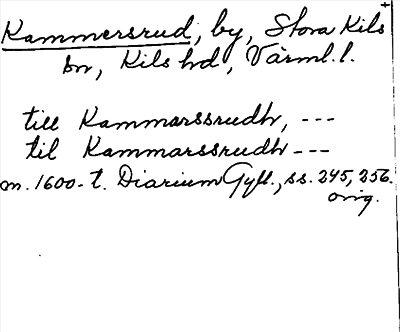 Kammersrud, by, Stora Kils
sn, Kils hd, Värml.l.
till Kammarssrudh, ---
til Kammarssrudh ---
m. 1600-t. Diarium Gyll., ss. 245, 256.
orig.